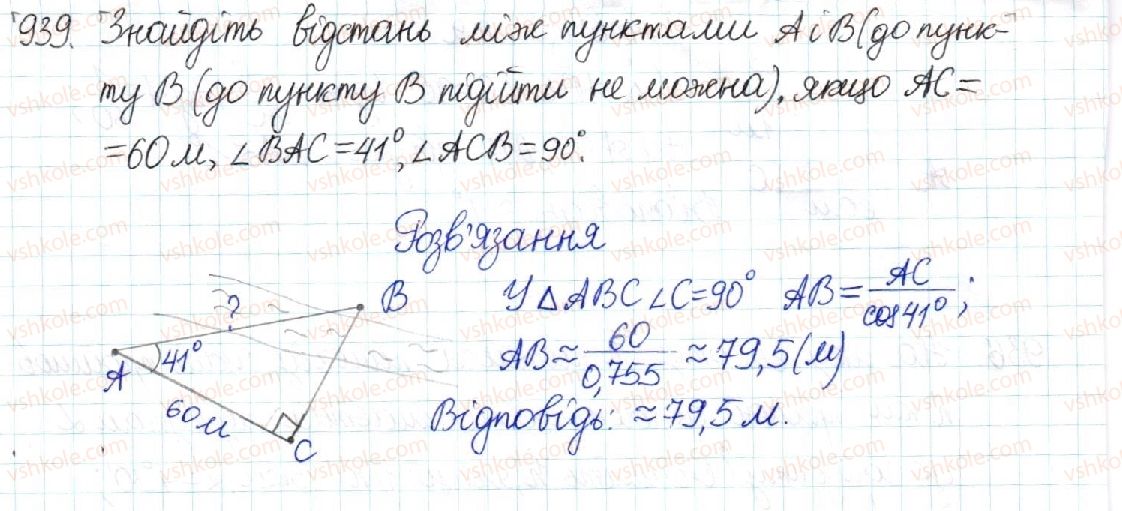 939. Знайдіть відстань між пунктами А і В (до пунк-
ту В (до пункту В підійти не можна), якщо АС=
=60м, ∠ВАС=41°, ∠АСВ=90°.
Розв'язання
У △АВС ∠С=90° АВ=АС/cos41°;
АВ≈60/0,755≈79,5(м)
Відповідь: ≈79,5м.
?
В
41°
А
60м
С
vshkole.com